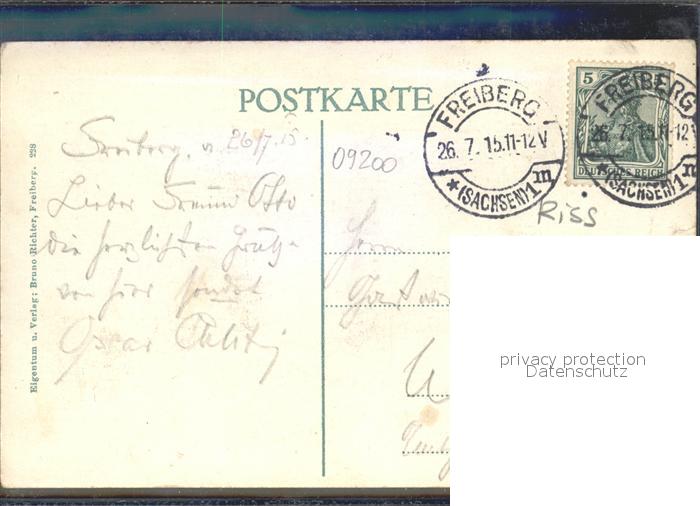 POSTKARTE
FREIBERG
26. 7. 15. 11-12 V
*(SACHSEN) 1 m
5
FREIBERG
26. 7. 15. 11-12
DEUTSCHES REICH
(SACHSEN) 1
09200
RiSS
Freiberg, 26/7. 15.
Lieber Freund Otto
die herzlichsten Grüße
von hier sendet
Oscar
Eigentum u. Verlag: Bruno Richter, Freiberg. 228
Herrn
privacy protection
Datenschutz